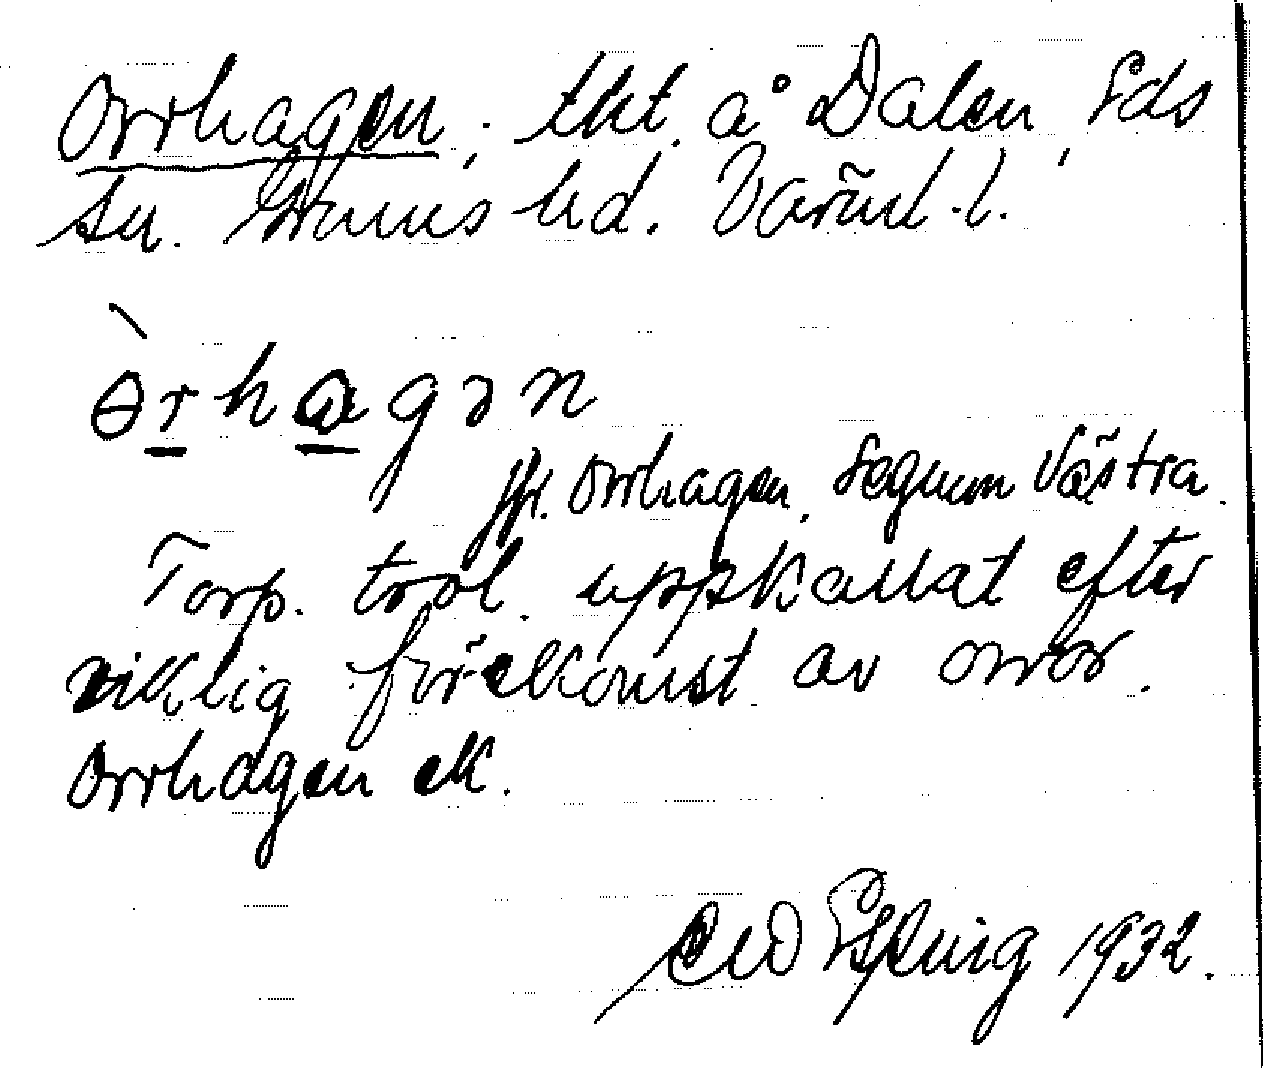 Orrhagen, tht. å Dalen, Eds
sn. Grums hd. Värml. l.
ɵ̀rhagən
jfr. Orrhagen, Segmon Västra.
Torp. trol. uppkallat efter
riklig förekomst av orrar.
Orrhagen ek.
Espling 1932.